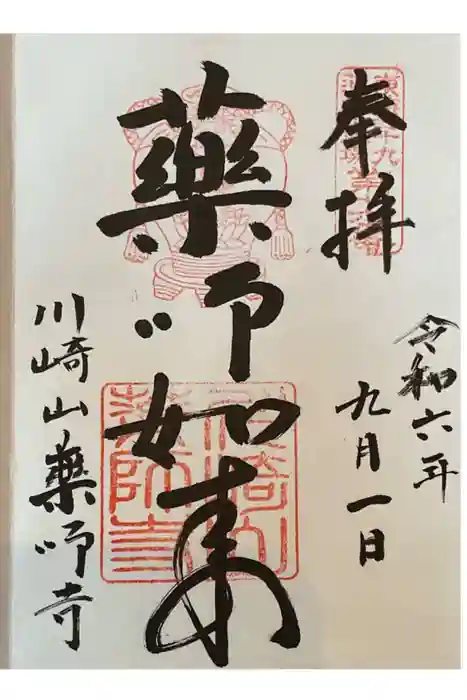 奉拝
令和六年
九月一日
藥師如来
川崎山藥師寺